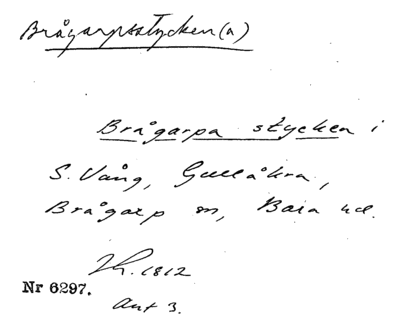 Brågarpsstycken(a)
Brågarpa stycken i
S. Vång, Gullåkra,
Brågarp sn, Bara hd.
Lh. 1812
Nr 6297.
Akt 3.